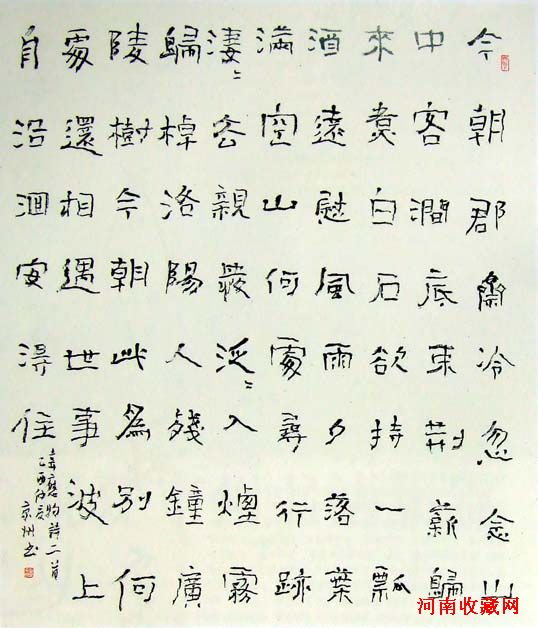 今朝郡齋冷忽念山
中客澗底束荊薪歸
來煮白石欲持一瓢
酒遠慰風雨夕落葉
滿空山何處尋行跡
淒〻去親愛泛〻入煙霧
歸棹洛陽人殘鐘廣
陵樹今朝此為別何
處還相遇世事波上
舟沿洄安得住
韋應物詩二首
河南收藏网